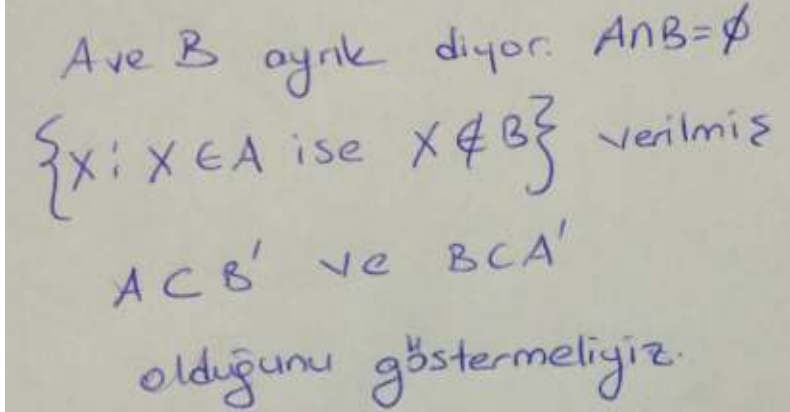 A ve B ayrık diyor. A∩B=∅
{x: x∈A ise x∉B} verilmiş
A⊂B' ve B⊂A'
olduğunu göstermeliyiz.